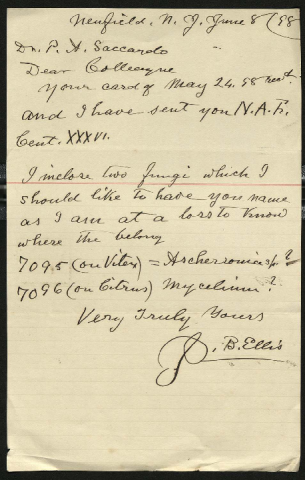 Newfield, N. J. June 8/98
Dr. P. A. Saccardo
Dear Colleague
Your card of May 24. 98 rec't.
and I have sent you N.A.F.
Cent. XXXVI.
I inclose two fungi which I
should like to have you name
as I am at a loss to know
where the belong
7095 (on Vitex) = Aschersonia sp?
7096 (on Citrus) Mycelium?
Very Truly Yours
J. B. Ellis